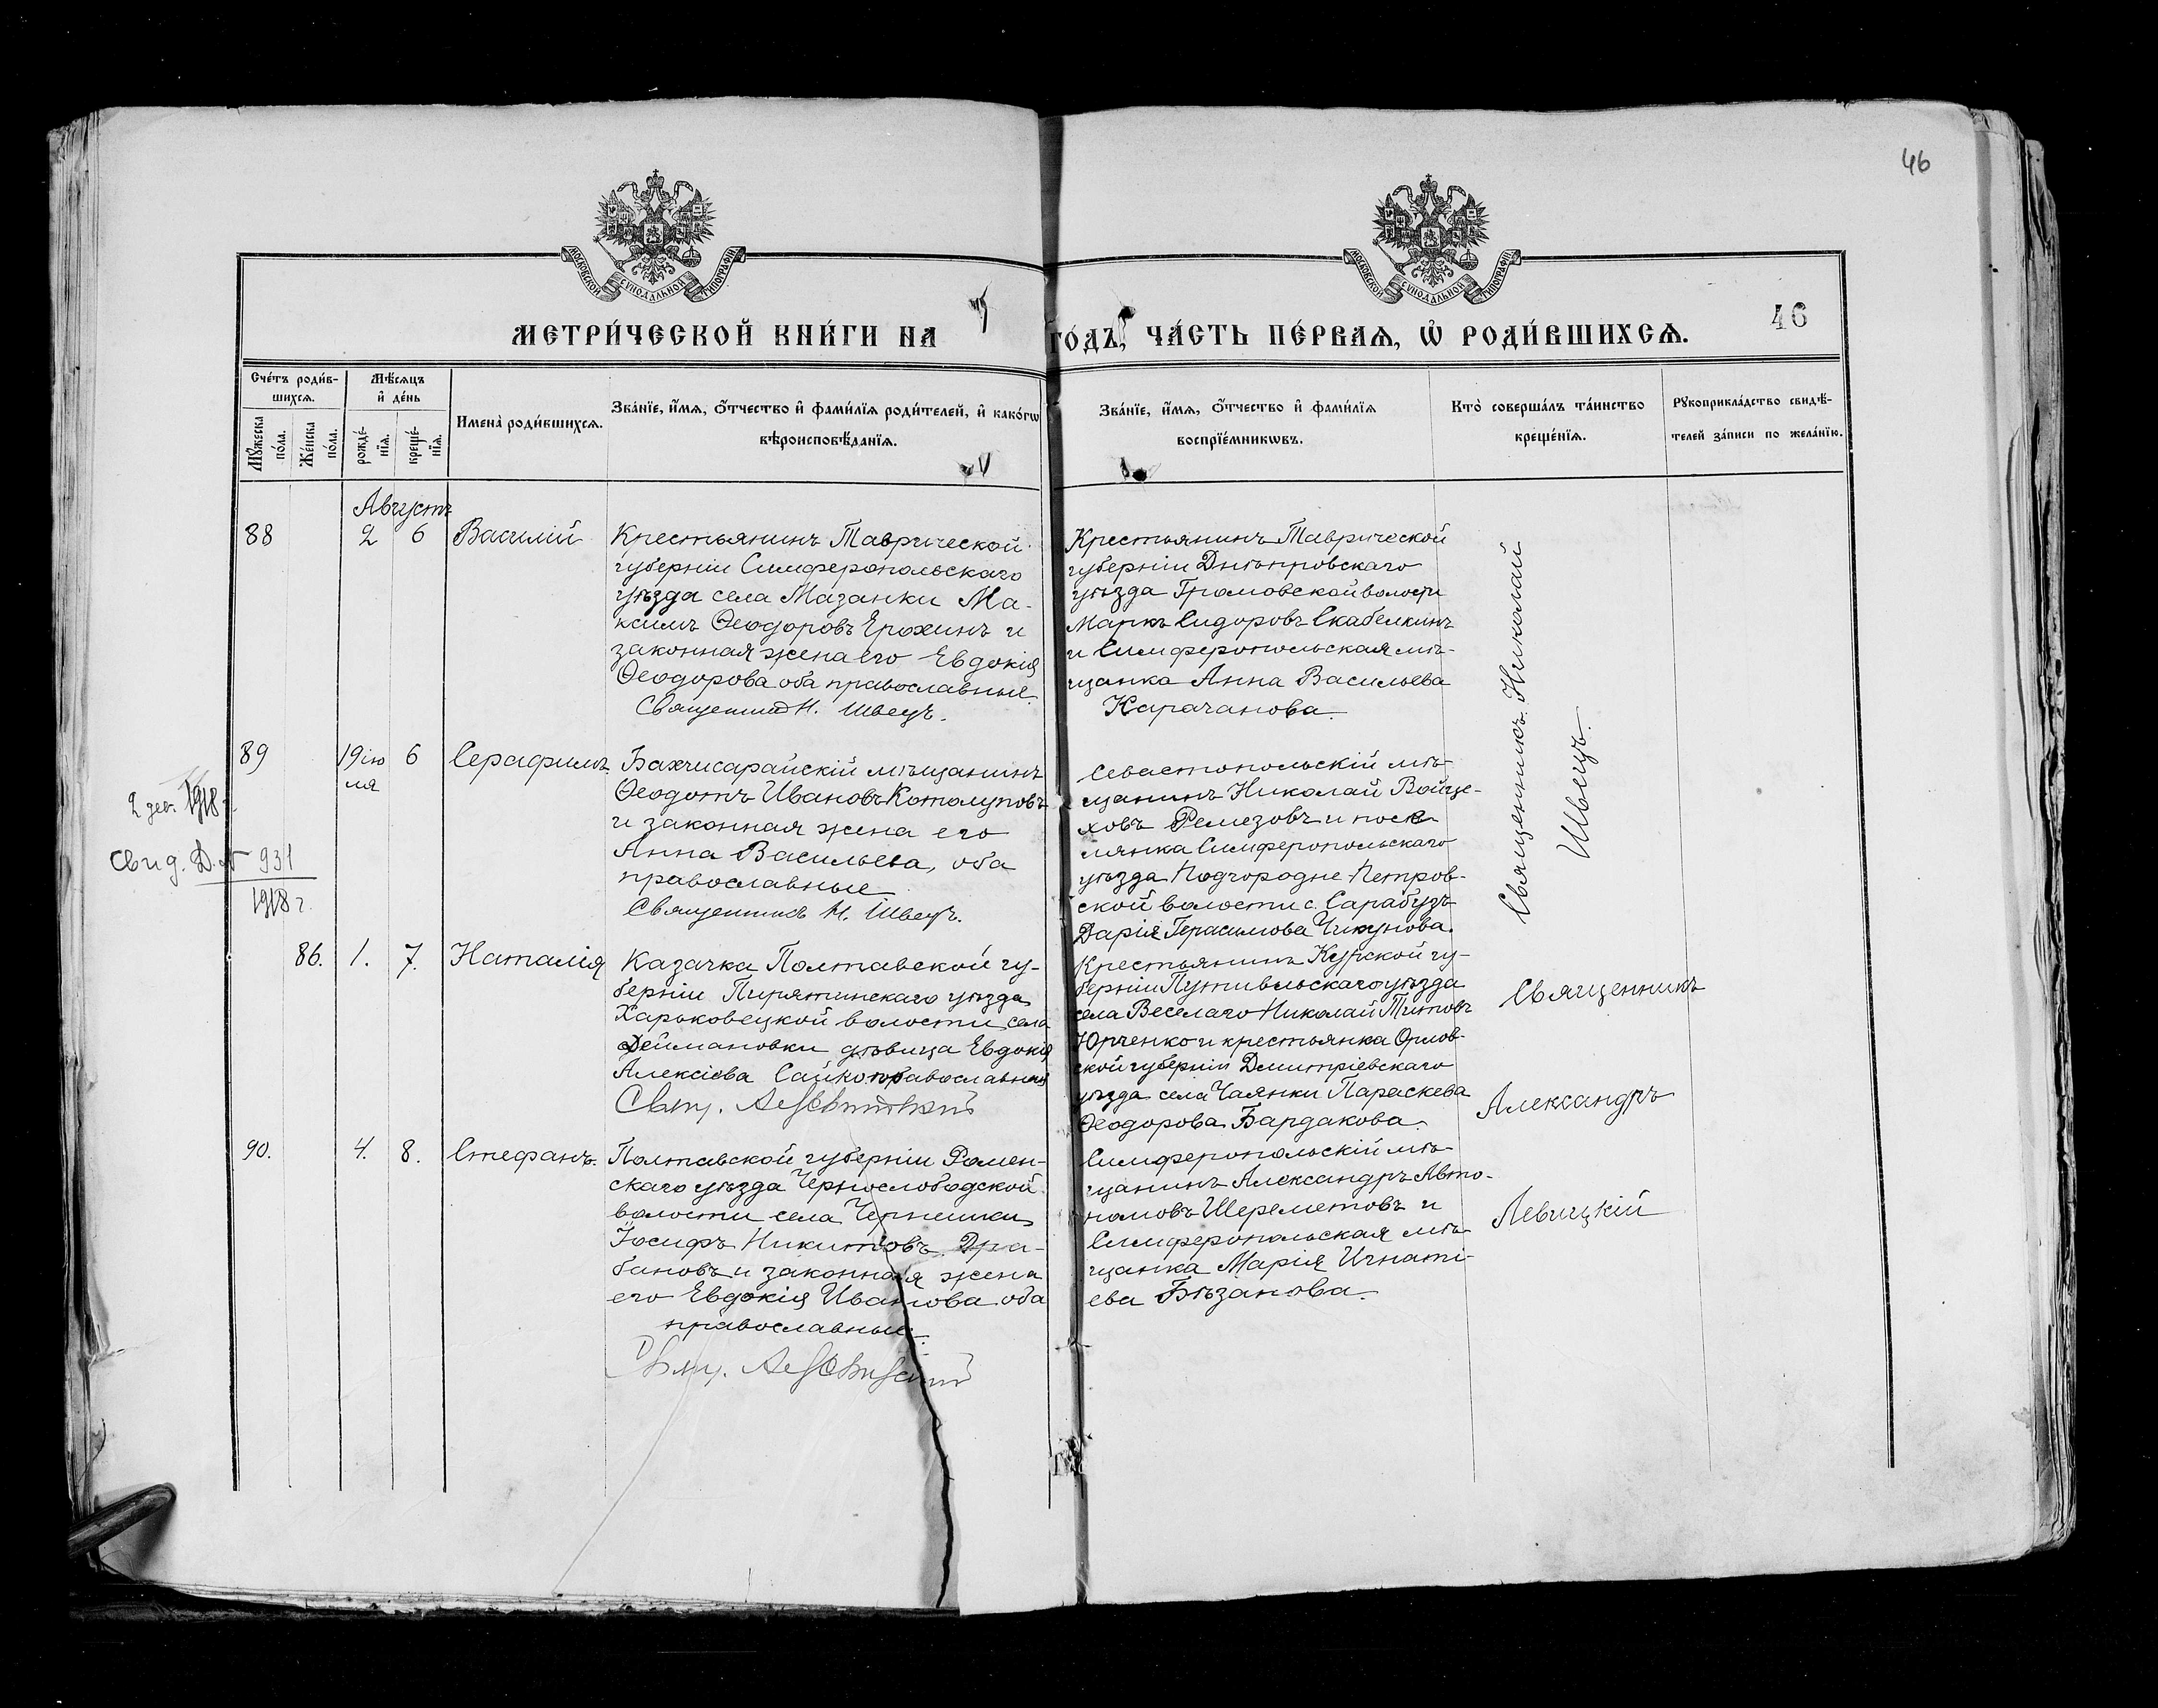 46
МОСКОВСКОЙ СѴНОДАЛЬНОЙ ТИПОГРАФІИ
МОСКОВСКОЙ СѴНОДАЛЬНОЙ ТИПОГРАФІИ
МЕТРИ́ЧЕСКОЙ КНИ́ГИ НА
ГО́ДЪ, ЧА́СТЬ ПЕ́РВАѦ, Ѡ҆ РОДИ́ВШИХСѦ.
46
Сче́тъ роди́в-
шихсѧ.
Мꙋ́жеска по́ла.
Же́нска по́ла.
Мѣ́сѧцъ
и҆ де́нь
рожде́-
нїѧ.
креще́-
нїѧ.
И҆мена̀ роди́вшихсѧ.
Зва́нїе, и҆́мѧ, ѻ҆́тчество и҆ фами́лїѧ роди́телей, и҆ како́гѡ
вѣроисповѣ́данїѧ.
Зва́нїе, и҆́мѧ, ѻ҆́тчество и҆ фами́лїѧ
воспрїе́мникѡвъ.
Кто̀ соверша́лъ та́инство
креще́нїѧ.
Рꙋкоприкла́дство свидѣ́-
телей за́писи по жела́нїю.
Августъ
88
2
6
Василій
Крестьянинъ Таврической
губерніи Симферопольскаго
уѣзда села Мазанки Ма-
ксимъ Ѳеодоровъ Ерохинъ и
законная жена его Евдокія
Ѳеодорова оба православные.
Священникъ Н. Швецъ.
Крестьянинъ Таврической
губерніи Днѣпровскаго
уѣзда Громовской волости
Маркъ Сидоровъ Скабелкинъ
и Симферопольская мѣ-
щанка Анна Васильева
Карачанова.
Священникъ Николай
Швецъ.
89
19 ію
ля
6
Серафимъ.
Бахчисарайскій мѣщанинъ
Ѳеодотъ Ивановъ Котолуповъ
и законная жена его
Анна Васильева, оба
православные
Священникъ Н. Швецъ.
Севастопольскій мѣ-
щанинъ Николай Войце-
ховъ Ремезовъ и посе-
лянка Симферопольскаго
уѣзда Подгородне-Петров-
ской волости с. Сарабузъ
Дарія Герасимова Чикунова.
1918 г.
Свид. Д. № 931
1918 г.
86.
1.
7.
Наталія
Казачка Полтавской гу-
берніи Пирятинскаго уѣзда
Харьковецкой волости села
Деймановки дѣвица Евдокія
Алексіева Сайко православная
Свящ. Левитскій
Крестьянинъ Курской гу-
берніи Путивльскаго уѣзда
села Веселаго Николай Титовъ
Юрченко и крестьянка Орлов-
ской губерніи Дмитріевскаго
уѣзда села Чаянки Параскева
Ѳеодорова Бардакова.
Священникъ
Александръ
Левицкій
90.
4.
8.
Стефанъ.
Полтавской губерніи Ромен-
скаго уѣзда Чернослободской
волости села Чернешки
Іосифъ Никитовъ Дра-
бановъ и законная жена
его Евдокія Иванова оба
православные.
Свящ.
Симферопольскій мѣ-
щанинъ Александръ Авто-
номовъ Шереметовъ и
Симферопольская мѣ-
щанка Марія Игнаті-
ева Бѣзанова.